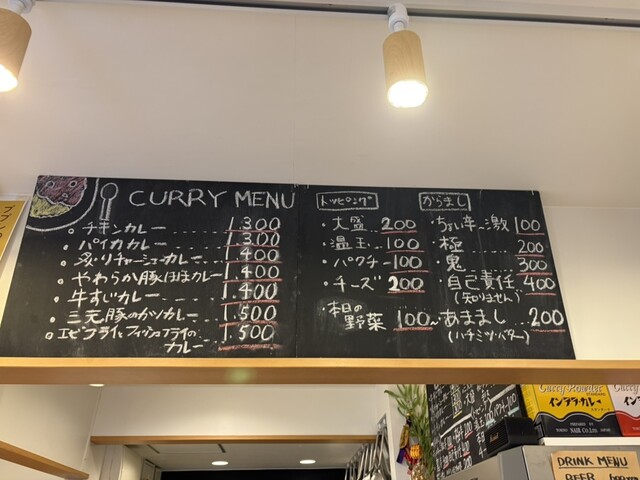 CURRY MENU
チキンカレー 1.300
パイカカレー 1.300
炙りチャーシューカレー 1.400
やわらか豚ほほカレー 1.400
牛すじカレー 1.400
三元豚のカツカレー 1.500
エビフライとフィッシュフライのカレー 1.500
トッピング
・大盛 200
・温玉 100
・パクチー 100
・チーズ 200
・本日の野菜 100~
からまし
・ちょい辛~激 100
・極 200
・鬼 300
・自己責任 400
(知りません)
・あままし 200
(ハチミツ・バター)
インデラ・カレー
DRINK MENU
BEER